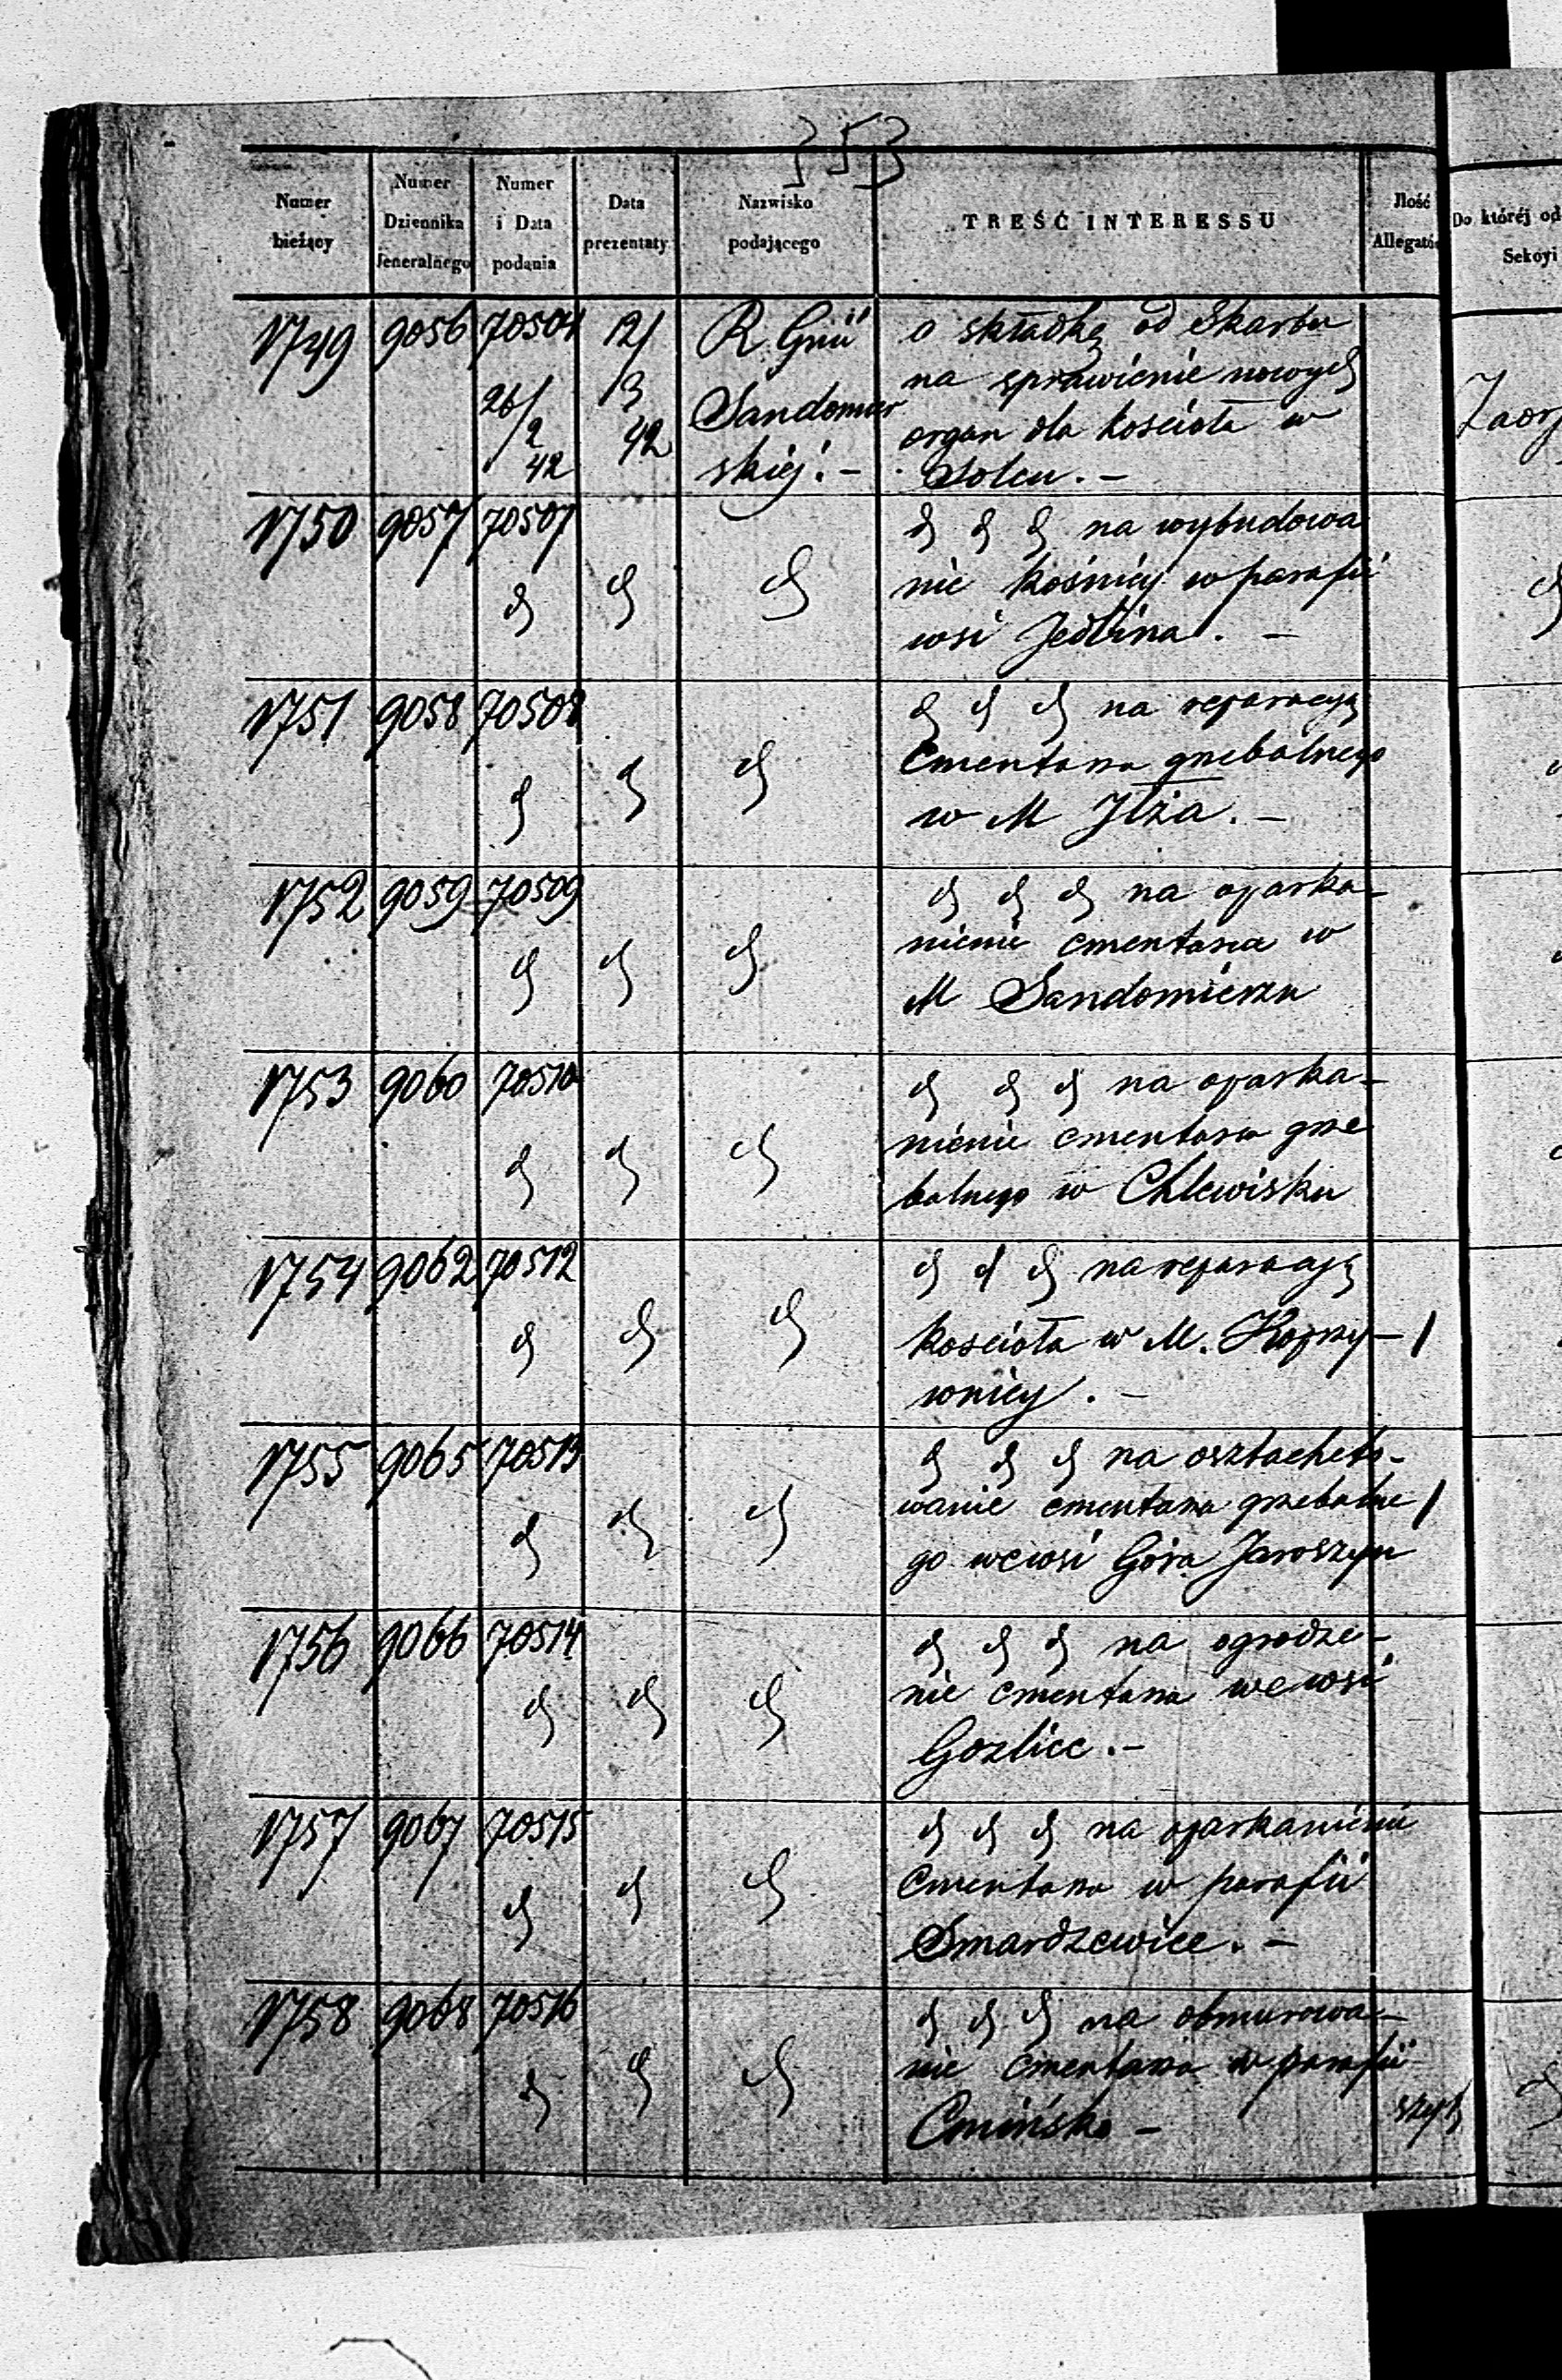 353
Numer bieżący | Numer Dziennika Jeneralnego | Numer i Data podania | Data prezentaty | Nazwisko podającego | TREŚĆ INTERESSU | Ilość Allegatów | Do któréj od Sekcyi
1749 | 9056 | 70504 26/2 42 | 12/3 42 | R. Gnii Sandomier skiéj. – | o składkę od Skarbu
na sprawienie nowych
organ dla kościoła w
Solcu. –
1750 | 9057 | 70507 d | d | d | d d d na wybudowa
nie kośnicy w parafii
wsi Jedlina. –
1751 | 9058 | 70508 d | d | d | d d d na reparacyą
cmentarza grzebalnego
w M Iłża. –
1752 | 9059 | 70509 d | d | d | d d d na oparka-
nienie cmentarza w
M Sandomierzu
1753 | 9060 | 70510 d | d | d | d d d na oparka-
nienie cmentarza grze
balnego w Chlewisku
1754 | 9062 | 70512 d | d | d | d d d na reparacyą
kościoła w M. Koprzy- | 1
wnicy. –
1755 | 9065 | 70513 d | d | d | d d d na osztacheto-
wanie cmentarza grzebalne | 1
go we wsi Góra Jaroszyn
1756 | 9066 | 70514 d | d | d | d d d na ogrodze-
nie cmentarza we wsi
Gozlice. –
1757 | 9067 | 70515 d | d | d | d d d na oparkanienie
cmentarza w parafii
Smardzewice. –
1758 | 9068 | 70516 d | d | d | d d d na obmurowa-
nie cmentarza w parafii
Cmińsko –